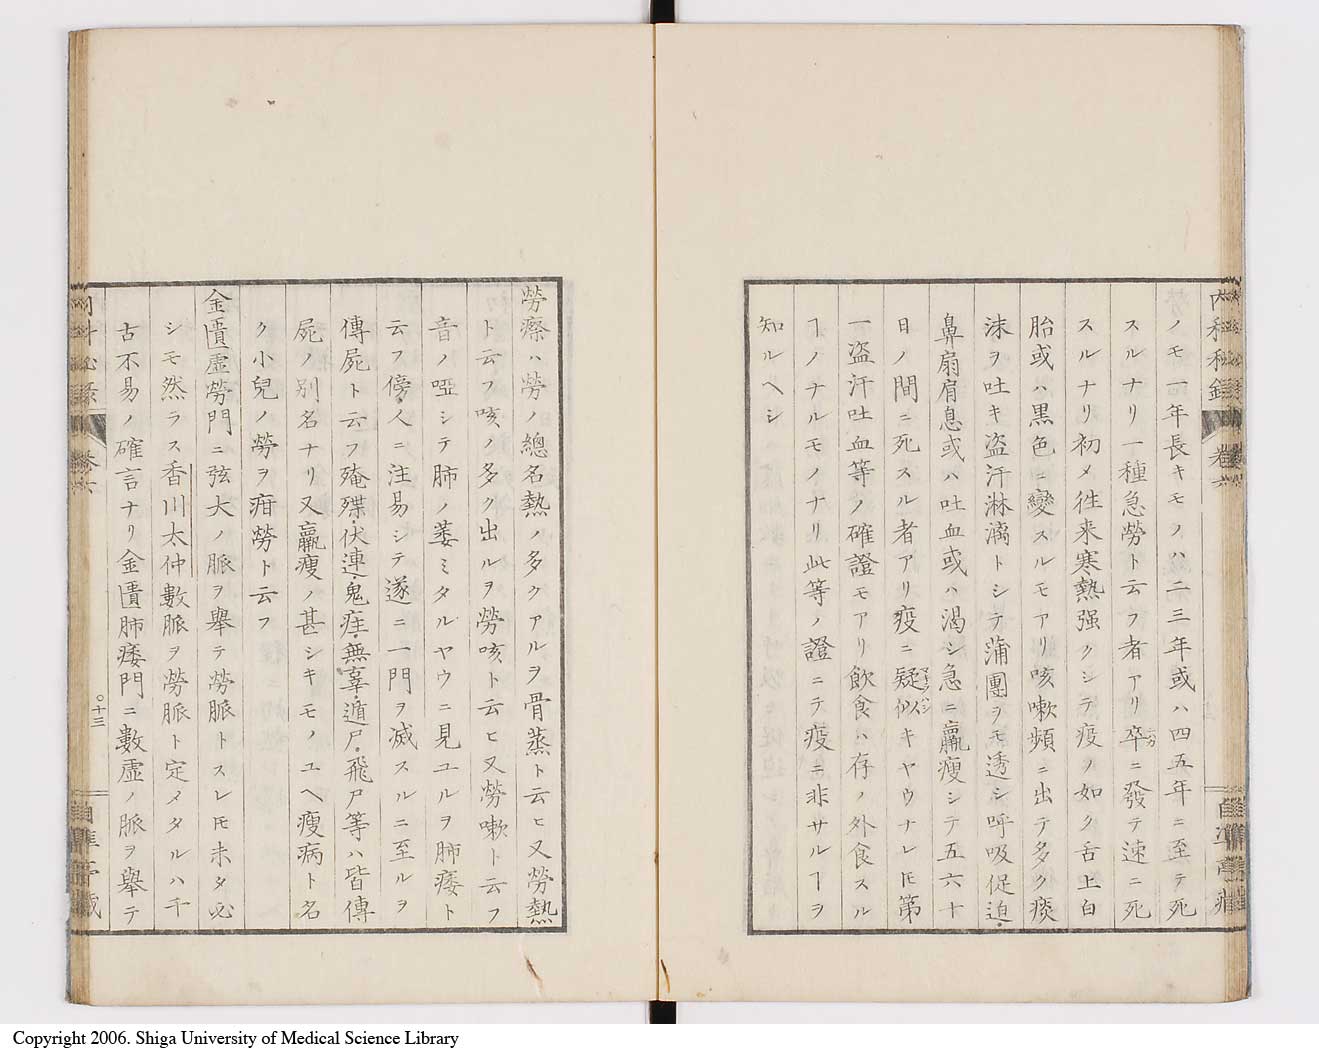 内科秘錄 卷六
勞ノモ一年長キモノハ二三年或ハ四五年ニ至テ死
スルナリ一種急勞ト云フ者アリ卒ニ發テ速ニ死
スルナリ初メ徃来寒熱强クシテ疫ノ如ク舌上白
胎或ハ黒色ニ變スルモアリ咳嗽頻ニ出テ多ク痰
沫ヲ吐キ盗汗淋漓トシテ蒲團ヲモ透シ呼吸促迫
鼻扇肩息或ハ吐血或ハ渇シ急ニ羸瘦シテ五六十
日ノ間ニ死スル者アリ疫ニ疑似キヤウナレ𪜈第
一盗汗吐血等ノ確證モアリ飲食ハ存ノ外食スル
ヿノナルモノナリ此等ノ證ニテ疫ニ非サルヿヲ
知ルヘシ
勞瘵ハ勞ノ總名熱ノ多クアルヲ骨蒸ト云ヒ又勞熱
ト云フ咳ノ多ク出ルヲ勞咳ト云ヒ又勞嗽ト云フ
音ノ啞シテ肺ノ萎ミタルヤウニ見ユルヲ肺痿ト
云フ傍人ニ注易シテ遂ニ一門ヲ滅スルニ至ルヲ
傳屍ト云フ殗殜伏連鬼疰無辜遁尸飛尸等ハ皆傳
屍ノ別名ナリ又羸瘦ノ甚シキモノユヘ瘦病ト名
ク小兒ノ勞ヲ疳勞ト云フ
金匱虛勞門ニ弦大ノ脈ヲ舉テ勞脈トスレ𪜈未タ必
シモ然ラス香川太仲數脈ヲ勞脈ト定メタルハ千
古不易ノ確言ナリ金匱肺痿門ニ數虛ノ脈ヲ舉テ
内科秘錄 卷六 ○十三 自準亭藏
Copyright 2006. Shiga University of Medical Science Library